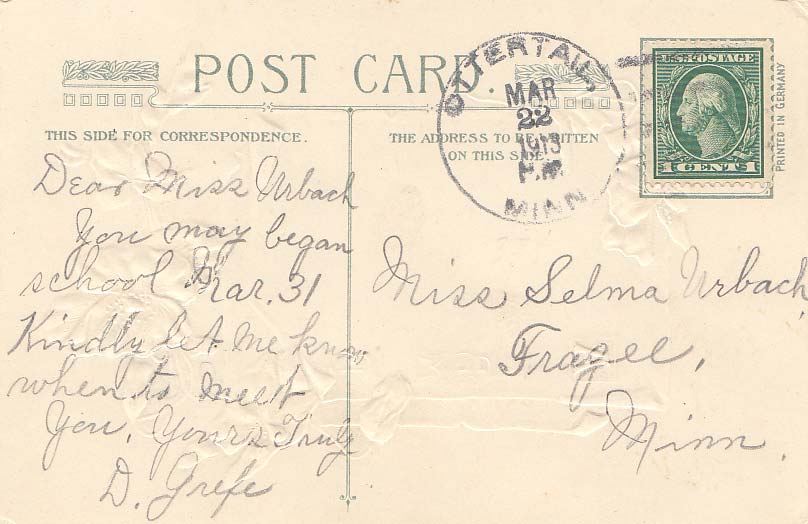 POST CARD.
THIS SIDE FOR CORRESPONDENCE.
THE ADDRESS TO BE WRITTEN
ON THIS SIDE.
OTTERTAIL
MAR
22
1913
P.M.
MINN.
U.S. POSTAGE
1 CENT 1
PRINTED IN GERMANY
Dear Miss Urbach
You may began
school Mar. 31
Kindly let me know
when to meet
You. Yours Truly
D. Grefe
Miss Selma Urbach,
Frazee,
Minn.